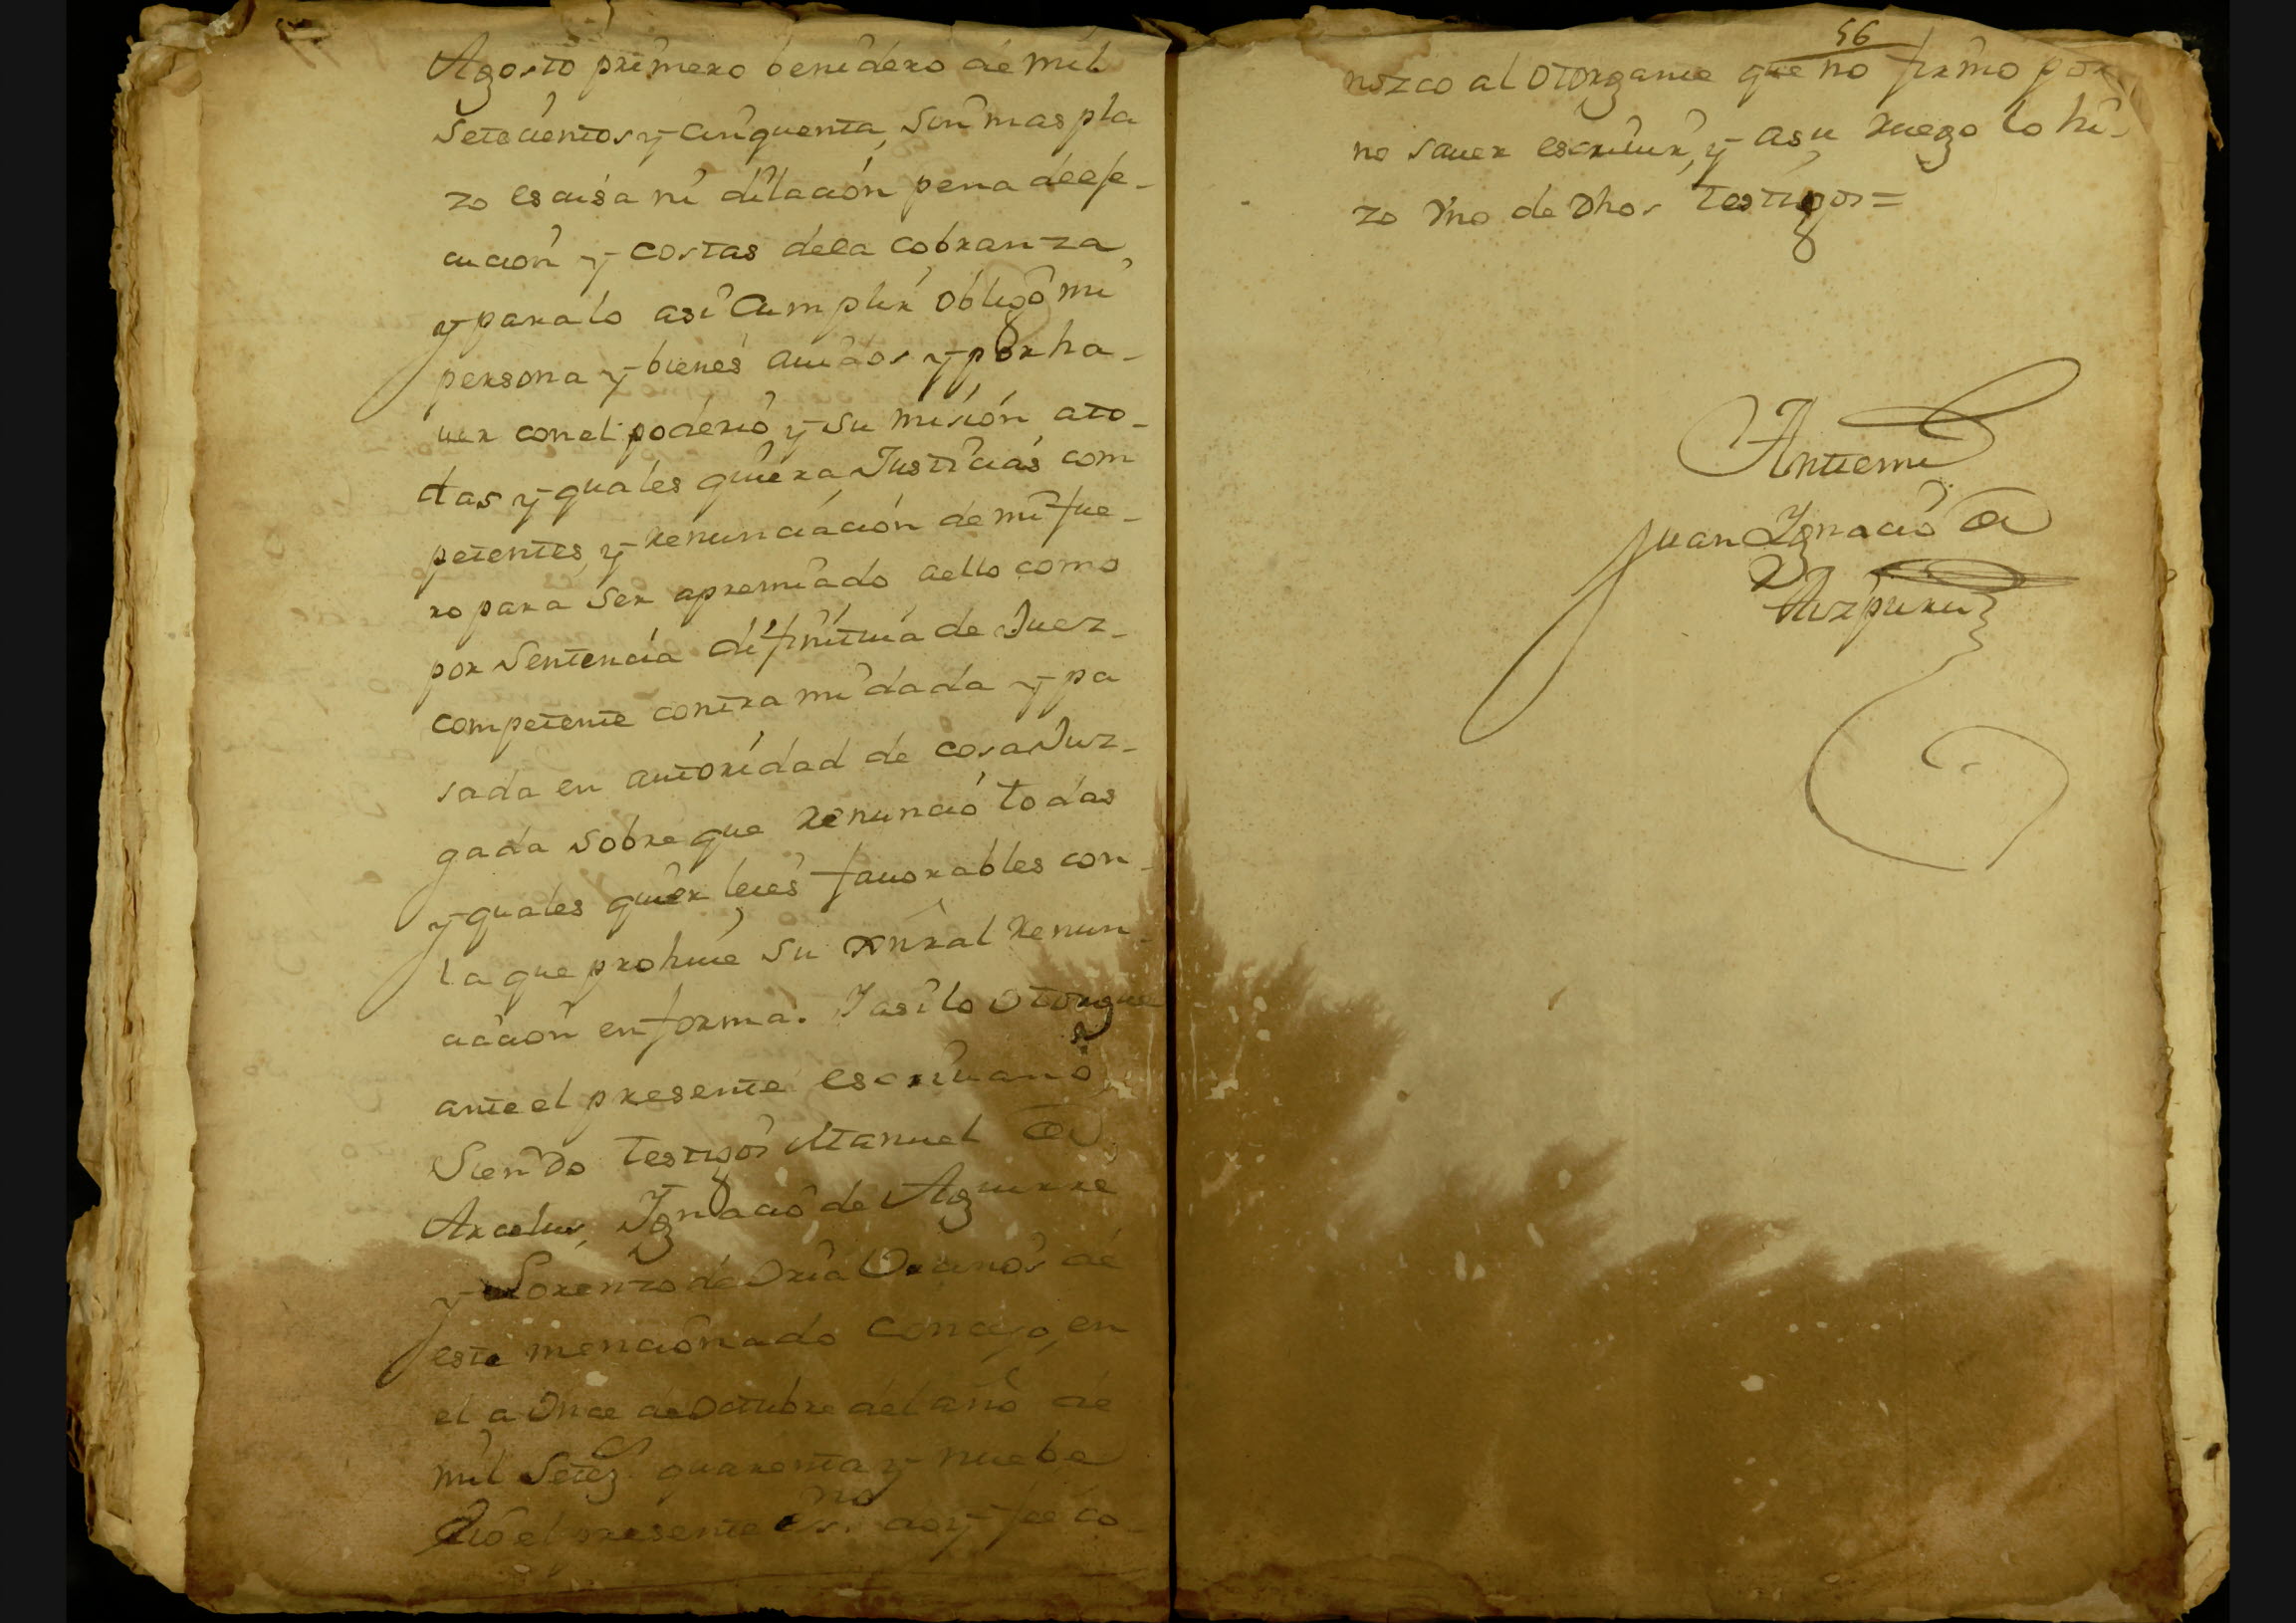 Agosto primero benidero de mil
Setecientos y cinquenta, sin mas pla
zo escusa ni dilacion pena de eje-
cucion y costas dela cobranza,
y paralo asi Cumplir obligo mi
persona y bienes auidos y por ha-
uer con el poderio y su mision ato-
das y quales quiera Justicias com
petentes, y renunciacion de mi fue-
ro para ser apremiado aello como
por Sentencia difinitiua de Juez-
competente contra mi dada y pa
sada en autoridad de cosa Juz-
gada sobre que renuncio todas
y quales quier leies fauorables con-
la que prohiue su gnral renun-
ciacion en forma. Y asi lo otorgue
ante el presente escriuano,
Siendo testigos Manuel de
Arcelus, Ygnacio de Aguirre
y Lorenzo de Oria Vecinos de
este mencionado Concejo, en
el a Once de Octubre del año de
mil Setez.s quarenta y nuebe
Y io el presente es.no doy fee co-
56
nozco al otorgante que no firmo por
no sauer escriuir, y asu ruego lo hi-
zo vno de dhos testigos =
Antemi
Juan Ygnacio de
Aizpuru